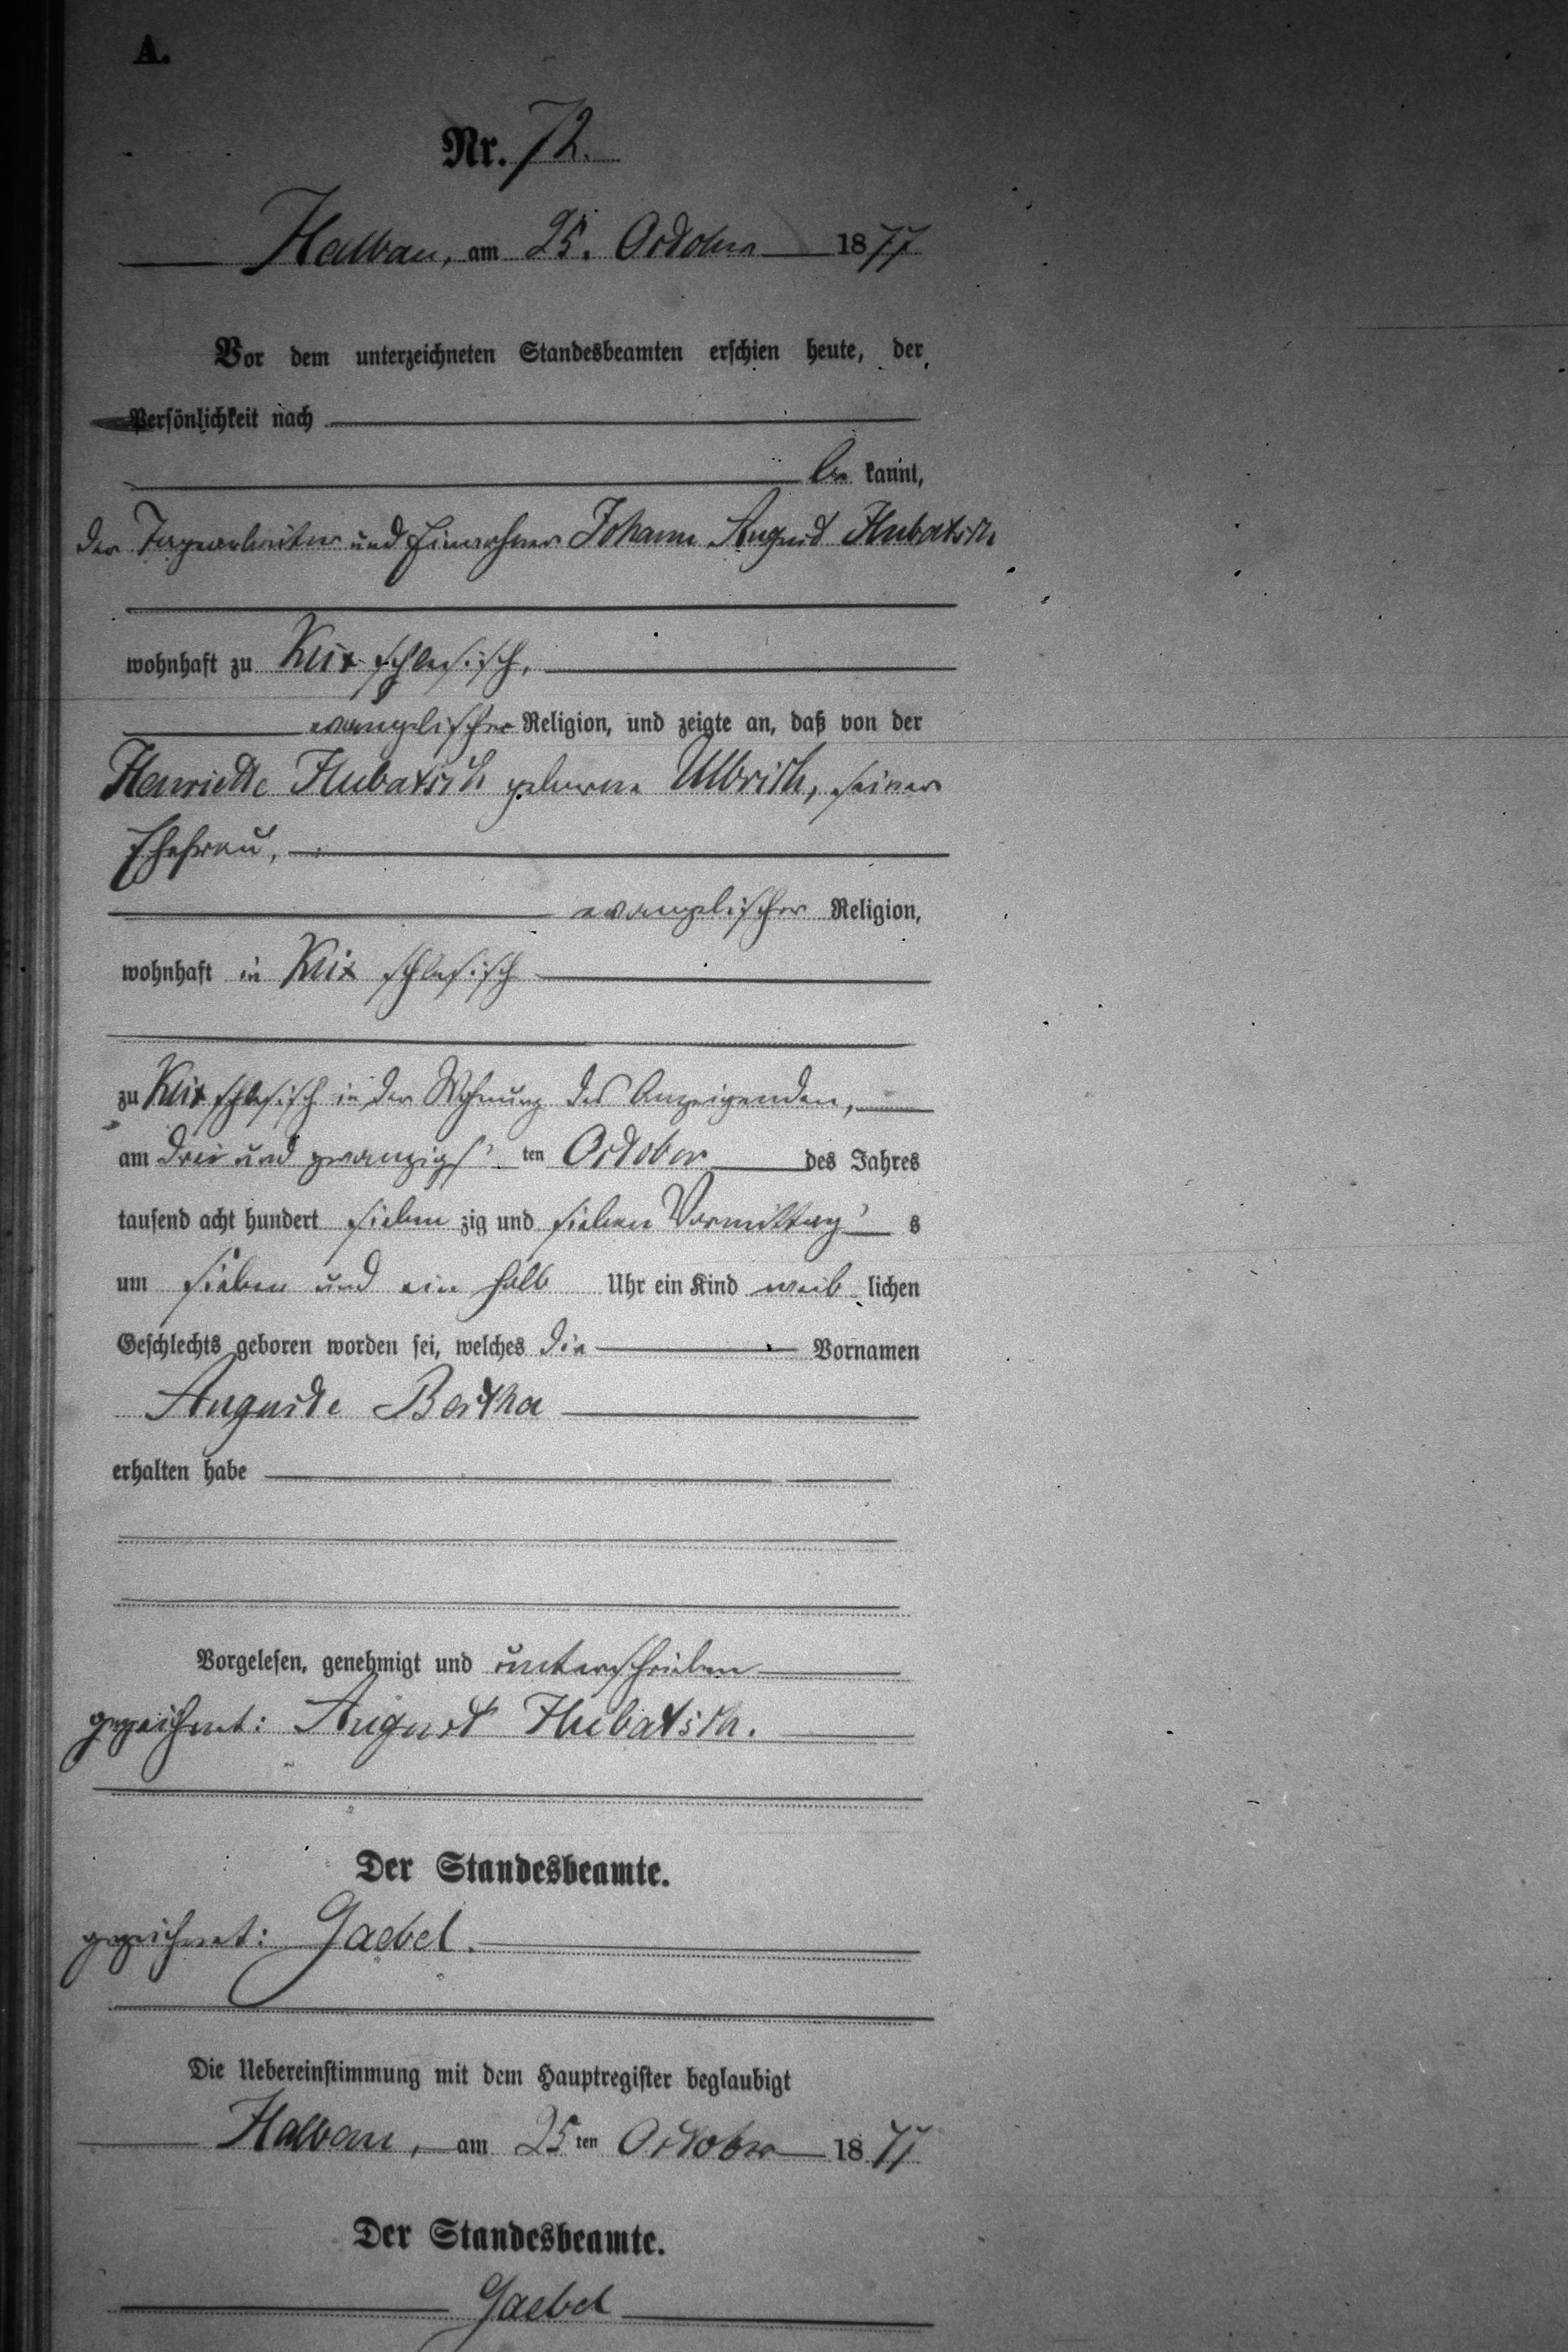 A.
Nr. 72.
Halbau, am 25. October 1877
Vor dem unterzeichneten Standesbeamten erschien heute, der
Persönlichkeit nach
be kannt,
der Tagearbeiter und Einwohner Johann August Hubatsch
wohnhaft zu Klix schlesisch,
evangelischer Religion, und zeigte an, daß von der
Henriette Hubatsch geborne Ulbrich, seiner
Ehefrau,
evangelischer Religion,
wohnhaft in Klix schlesisch
zu Klix schlesisch in der Wohnung des Anzeigenden,
am drei und zwanzigs ten October des Jahres
tausend acht hundert sieben zig und sieben Vormittag s
um sieben und ein halb Uhr ein Kind weib lichen
Geschlechts geboren worden sei, welches die Vornamen
Auguste Bertha
erhalten habe
Vorgelesen, genehmigt und unterschrieben
gezeichnet: August Hubatsch.
Der Standesbeamte.
gezeichnet: Gaebel.
Die Uebereinstimmung mit dem Hauptregister beglaubigt
Halbau, am 25 ten October 1877
Der Standesbeamte.
Gaebel